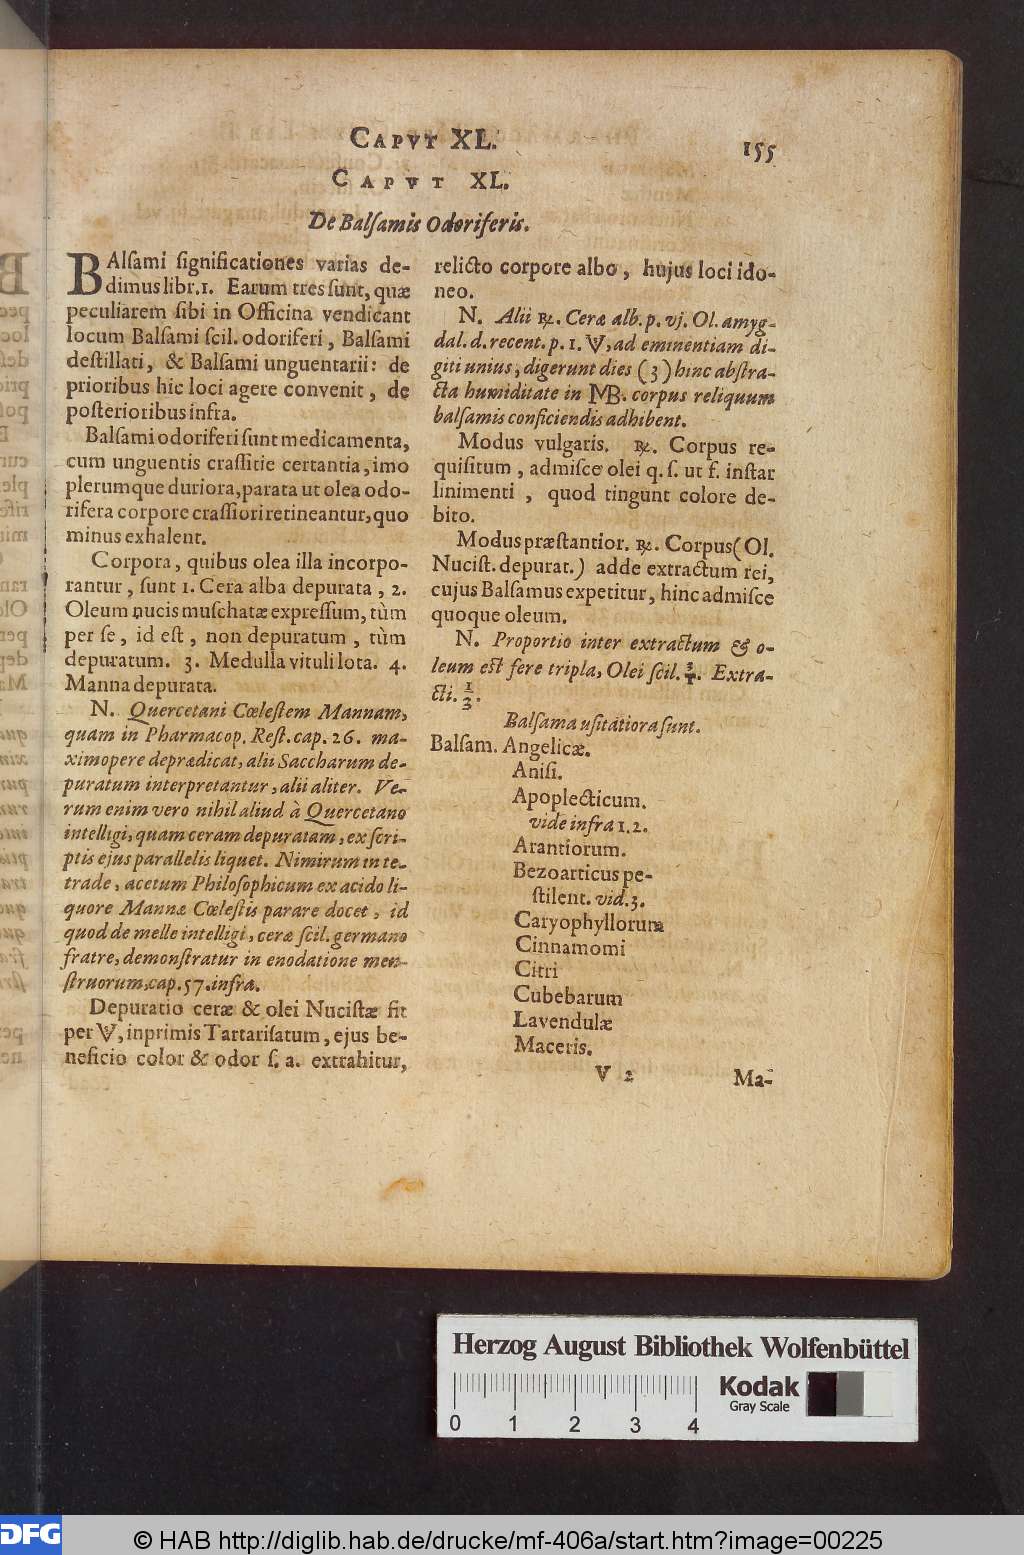 CAPVT XL.
155
CAPVT XL.
De Balſamis Odoriferis.
BAlſami ſignificationes varias de-
dimus libr. 1. Earum tres ſunt, quæ
peculiarem ſibi in Officina vendicant
locum Balſami ſcil. odoriferi, Balſami
deſtillati, & Balſami unguentarii: de
prioribus hic loci agere convenit, de
poſterioribus infra.
Balſami odoriferi ſunt medicamenta,
cum unguentis craſſitie certantia, imo
plerumque duriora, parata ut olea odo-
rifera corpore craſſiori retineantur, quo
minus exhalent.
Corpora, quibus olea illa incorpo-
rantur, ſunt 1. Cera alba depurata, 2.
Oleum nucis muſchatæ expreſſum, tùm
per ſe, id eſt, non depuratum, tùm
depuratum. 3. Medulla vituli lota. 4.
Manna depurata.
N. Quercetani Cœleſtem Mannam,
quam in Pharmacop. Reſt. cap. 26. ma-
ximopere deprædicat, alii Saccharum de-
puratum interpretantur, alii aliter. Ve-
rum enim vero nihil aliud à Quercetano
intelligi, quam ceram depuratam, ex ſcri-
ptis ejus parallelis liquet. Nimirum in te-
trade, acetum Philoſophicum ex acido li-
quore Mannæ Cœleſtis parare docet, id
quod de melle intelligi, ceræ ſcil. germano
fratre, demonſtratur in enodatione men-
ſtruorum, cap. 57. infra.
Depuratio ceræ & olei Nuciſtæ fit
per 🜄, inprimis Tartariſatum, ejus be-
neficio color & odor ſ. a. extrahitur,
relicto corpore albo, hujus loci ido-
neo.
N. Alii ℞. Ceræ alb. p. vj. Ol. amyg-
dal. d. recent. p. 1. 🜄, ad eminentiam di-
giti unius, digerunt dies (3) hinc abſtra-
cta humiditate in MB. corpus reliquum
balſamis conficiendis adhibent.
Modus vulgaris. ℞. Corpus re-
quiſitum, admiſce olei q. ſ. ut f. inſtar
linimenti, quod tingunt colore de-
bito.
Modus præſtantior. ℞. Corpus (Ol.
Nuciſt. depurat.) adde extractum rei,
cujus Balſamus expetitur, hinc admiſce
quoque oleum.
N. Proportio inter extractum & o-
leum eſt fere tripla, Olei ſcil. 3/1. Extra-
cti. 1/3.
Balſama uſitatiora ſunt.
Balſam. Angelicæ.
Aniſi.
Apoplecticum.
vide infra 1. 2.
Arantiorum.
Bezoarticus pe-
ſtilent. vid. 3.
Caryophyllorum
Cinnamomi
Citri
Cubebarum
Lavendulæ
Maceris.
V 2
Ma-
Herzog August Bibliothek Wolfenbüttel
Kodak
Gray Scale
0 1 2 3 4
DFG
© HAB http://diglib.hab.de/drucke/mf-406a/start.htm?image=00225